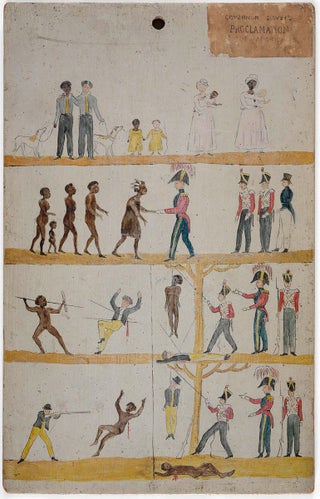 GOVERNOR DAVEY'S
PROCLAMATION